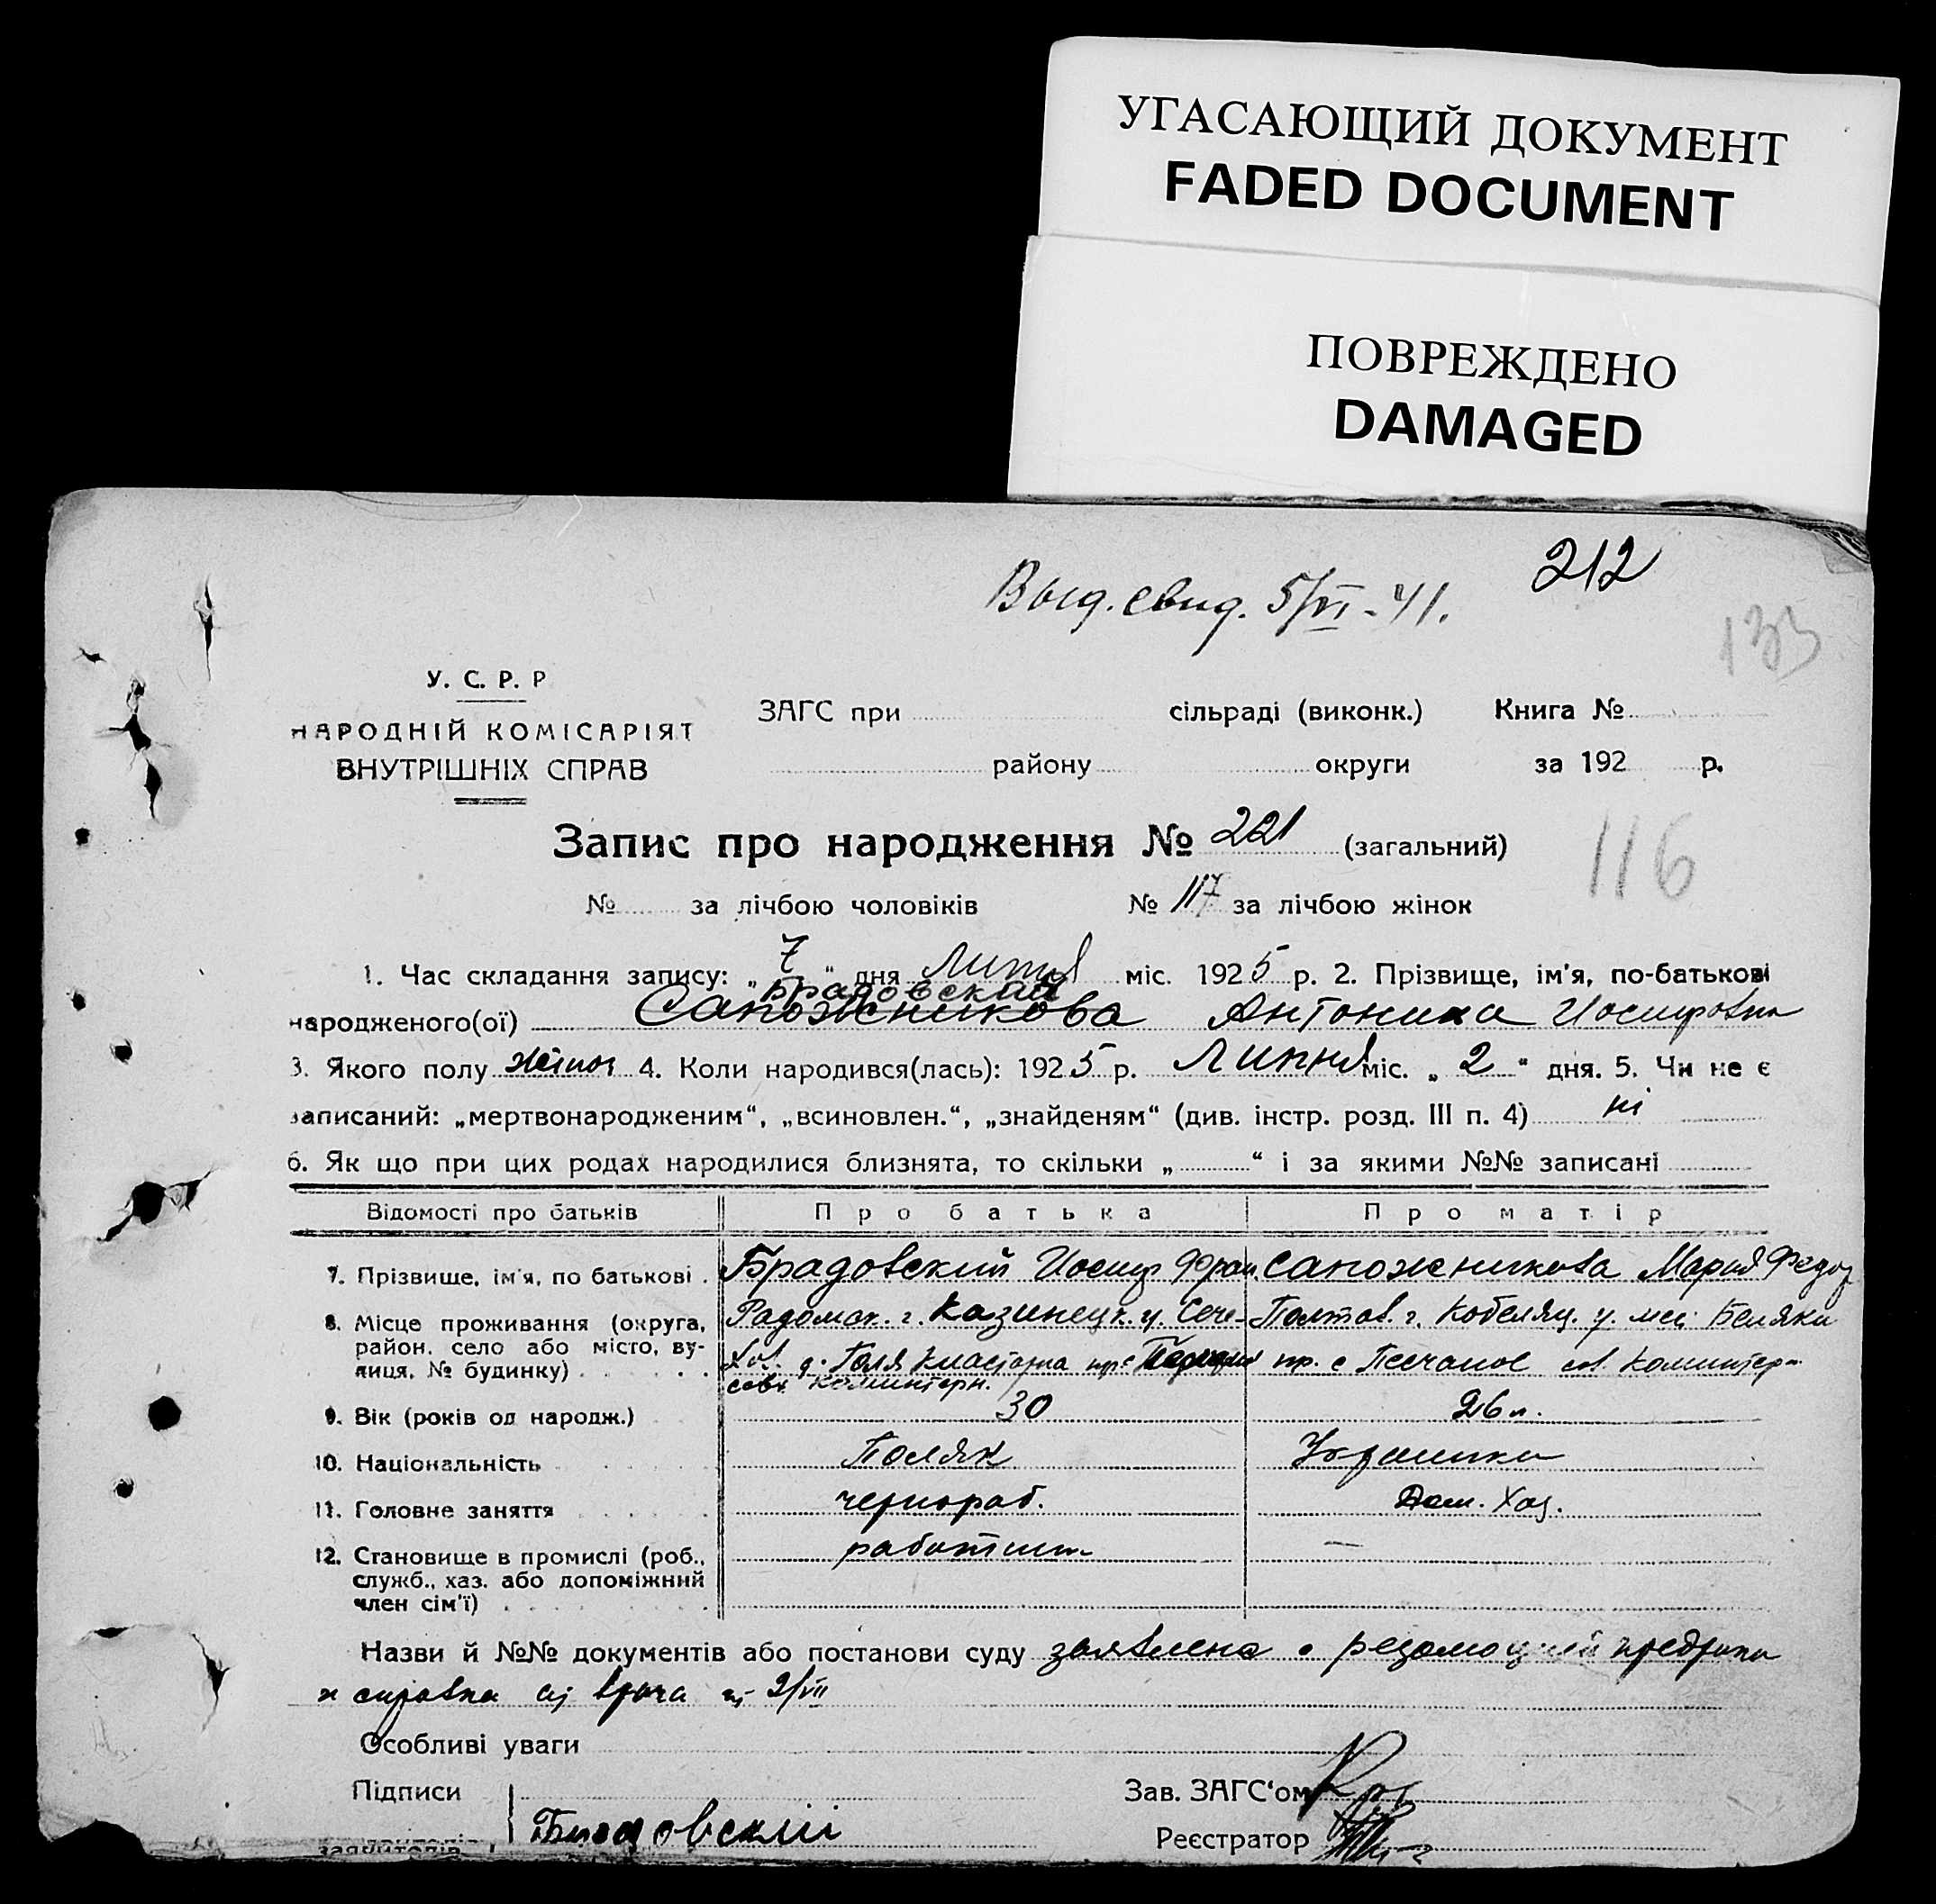 УГАСАЮЩИЙ ДОКУМЕНТ
FADED DOCUMENT
ПОВРЕЖДЕНО
DAMAGED
212
Выд. свид. 5/VI - 41.
133
У. С. Р. Р
НАРОДНІЙ КОМІСАРІЯТ
ВНУТРІШНІХ СПРАВ
ЗАГС при сільраді (виконк.) Книга №
району округи за 192 р.
Запис про народження № 221 (загальний)
116
№ за лічбою чоловіків № 117 за лічбою жінок
1. Час складання запису: „ 7 “ дня Липня міс. 1925 р. 2. Прізвище, ім'я, по-батькові
Брадовская
народженого(ої) Сапожникова Антонина Иосиповна
3. Якого полу жіноч 4. Коли народився(лась): 1925 р. Липня міс. „ 2 “ дня. 5. Чи не є
записаний: „мертвонародженим“, „всиновлен.“, „знайденям“ (див. інстр. розд. III п. 4) ні
6. Як що при цих родах народилися близнята, то скільки „ “ і за якими №№ записані
Відомості про батьків Про батька Про матір
7. Прізвище, ім'я, по батькові . Брадовский Иосип Фран. Сапожникова Мария Федор
8. Місце проживання (округа, район, село або місто, вулиця, № будинку) Радомск. г. у. Полтав. г. Кобеляц. у. Беляки
д. пр. с Песчаное Коминтерн
Коминтерн.
9. Вік (років од народж.) 30 26 л.
10. Національність Поляк Украинка
11. Головне заняття чернораб. Дом. Хоз.
12. Становище в промислі (роб., служб., хаз. або допоміжний член сім'ї) —
Назви й №№ документів або постанови суду с резолюцией
и справка врача 2/VII
Особливі уваги
Підписи Зав. ЗАГС'ом
заявителів Реєстратор